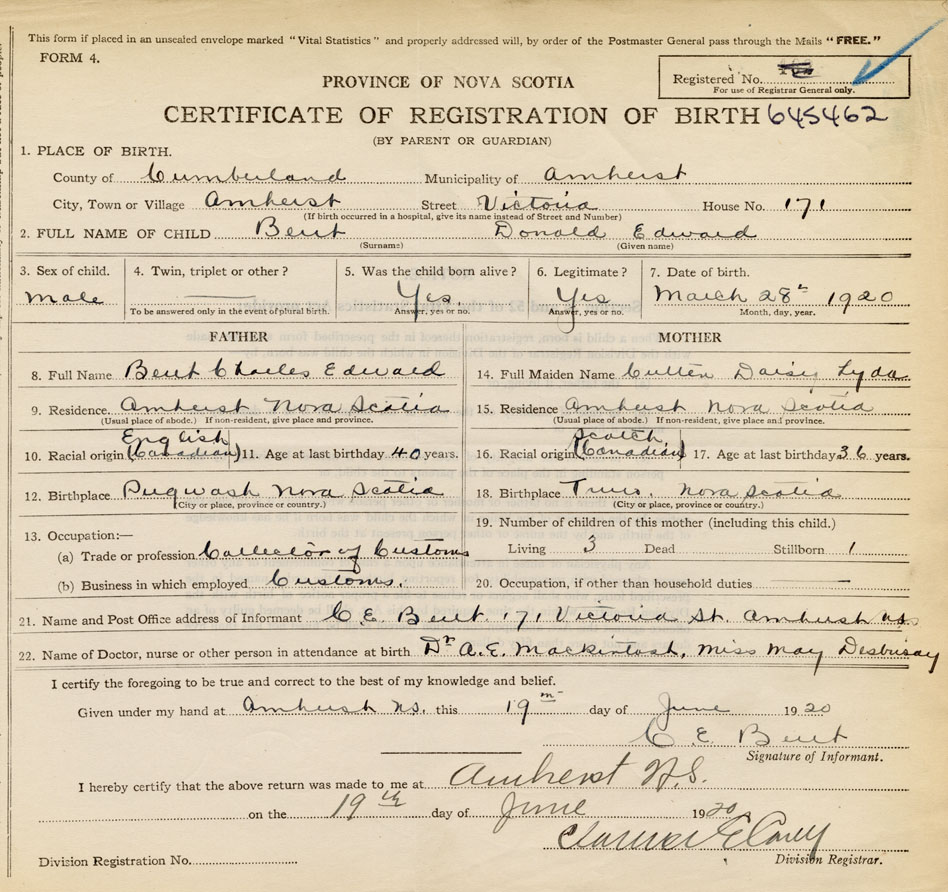 This form if placed in an unsealed envelope marked "Vital Statistics" and properly addressed will, by order of the Postmaster General pass through the Mails "FREE."
FORM 4.
Registered No.
For use of Registrar General only.
PROVINCE OF NOVA SCOTIA
CERTIFICATE OF REGISTRATION OF BIRTH 645462
(BY PARENT OR GUARDIAN)
1. PLACE OF BIRTH.
County of Cumberland Municipality of Amherst
City, Town or Village Amherst Street Victoria House No. 171
(If birth occurred in a hospital, give its name instead of Street and Number)
2. FULL NAME OF CHILD Bent Donald Edward
(Surname) (Given name)
3. Sex of child. 4. Twin, triplet or other? 5. Was the child born alive? 6. Legitimate? 7. Date of birth.
male Yes. Yes March 28th 1920
To be answered only in the event of plural birth. Answer, yes or no. Answer, yes or no. Month, day, year.
FATHER MOTHER
8. Full Name Bent Charles Edward 14. Full Maiden Name Cutten Daisy Lyda
9. Residence. Amherst Nova Scotia 15. Residence Amherst Nova Scotia
(Usual place of abode.) If non-resident, give place and province. (Usual place of abode.) If non-resident, give place and province.
English Scotch
10. Racial origin (Canadian) 11. Age at last birthday 40 years. 16. Racial origin (Canadian) 17. Age at last birthday 36 years.
12. Birthplace Pugwash Nova Scotia 18. Birthplace Truro, Nova Scotia
(City or place, province or country.) (City or place, province or country.)
13. Occupation:— 19. Number of children of this mother (including this child.)
(a) Trade or profession Collector of Customs Living 3 Dead Stillborn 1
(b) Business in which employed Customs. 20. Occupation, if other than household duties —
21. Name and Post Office address of Informant C. E. Bent. 171 Victoria St. Amherst NS
22. Name of Doctor, nurse or other person in attendance at birth Dr A. E. Mackintosh, Miss May Desbrisay
I certify the foregoing to be true and correct to the best of my knowledge and belief.
Given under my hand at Amherst N.S. this 19th day of June 1920
C E Bent
Signature of Informant.
I hereby certify that the above return was made to me at Amherst N.S.
on the 19th day of June 1920
Clarence E Casey
Division Registration No. Division Registrar.